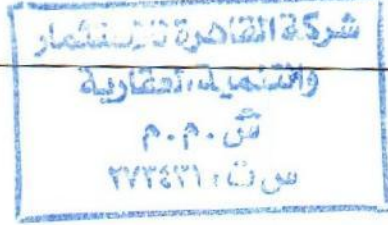 شركة القاهرة للإستثمار
والتنمية العقارية
ش.م.م
س ت: ٢٧٣٤٢١